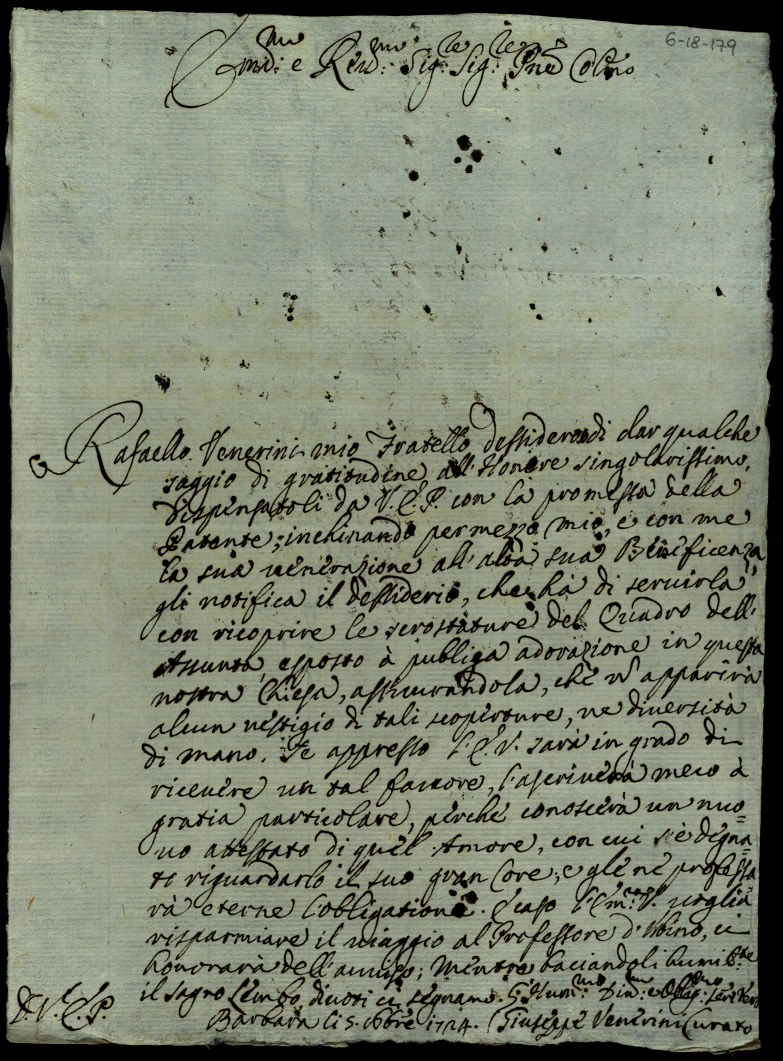 6-18-179
Em̃: e Reũ: Sig.re Sig.re Pñe Colmo
Rafaello Venerini mio Fratello dessideroso di dar qualche
saggio di gratitudine all'Honore singolarissimo,
dispensatoli da V.E.P. con la promessa della
Patente; inchinando per mezzo mio, e con me
la sua venerazione all'alta sua Beneficenza,
gli notifica il dessiderio, che hà di servirla
con ricoprire le scrostature del Quadro dell'
Assunta, esposto à publica adorazione in questa
nostra Chiesa, assicurandola, che n̄ apparirà
alcun vestigio di tali scoperture, ne diversità
di mano. Se appresso l'E.V. sarà in grado di
ricevere un tal favore, l'ascriverà meco à
gratia particolare, perche conoscerà un nuo=
vo attestato di quell'Amore, con cui s'è degna=
to riguardarlo il suo gran Core; e gle ne professa
rà eterne l'obligationi. E caso l'Em.za V. voglia
risparmiare il viaggio al Professore d'Urbino, ci
honorarà dell'auviso; mentre baciandoli humil.te
il sagro Lembo, divoti ci segnamo.
D. V. E. P.
Barbara li 5. 8bre 1724. Giuseppe Venerini Curato